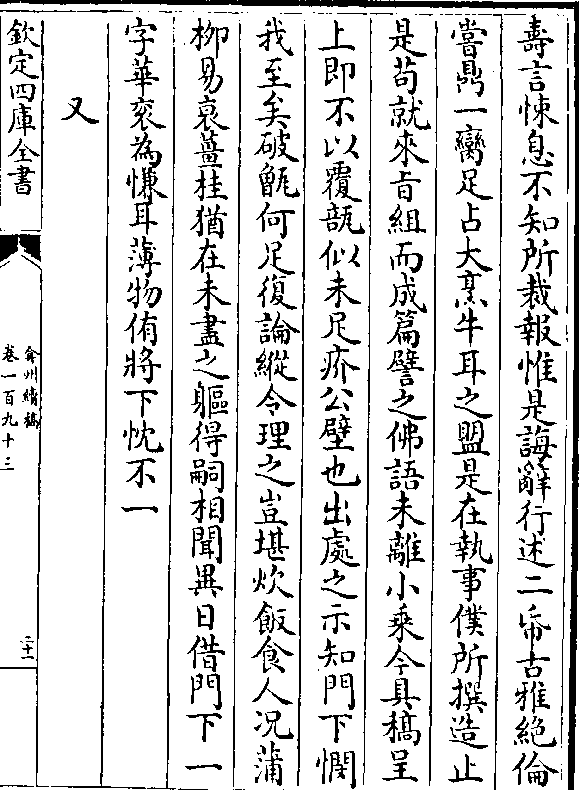 壽言悚息不知所裁報惟是誨辭行述二帋古雅絶倫
嘗鼎一臠足占大烹牛耳之盟是在執事僕所撰造止
是苟就來旨組而成篇譬之佛語未離小乘今具稿呈
上即不以覆瓿似未足疥公壁也出處之示知門下憫
我至矣破甑何足復論縱令理之豈堪炊飯食人况蒲
柳易衰薑桂猶在未盡之軀得嗣相聞異日借門下一
字華衮為慊耳薄物侑將下忱不一
又
欽定四庫全書
弇州續稿
卷一百九十三
二十一